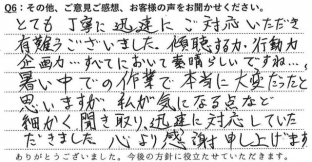 Q6：その他、ご意見ご感想、お客様の声をお聞かせください。
とても丁寧に迅速にご対応いただき
有難うございました。傾聴する力・行動力
企画力…すべてにおいて素晴らしいですね…。
暑い中での作業で本当に大変だったと
思いますが 私が気になる点など
細かく聞き取り、迅速に対応していた
だきました 心より感謝申し上げます
ありがとうございました。今後の方針に役立たせていただきます。